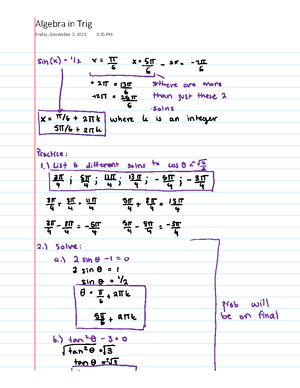 Algebra in Trig
Friday, December 3, 2021 3:35 PM
sin(x) = 1/2 x = π/6 x = 5π/6 - 2π = -7π/6
+ 2π = 13π/6 *there are more
+2π = 25π/6 than just these 2
solns
x = π/6 + 2πk where k is an integer
5π/6 + 2πk
Practice:
1.) List 6 different solns to cos θ =
3π/4 ; 5π/4 ; 11π/4 ; 13π/4 ; - 5π/4 ; - 3π/4
3π/4 + 8π/4 = 11π/4 5π/4 + 8π/4 = 13π/4
3π/4 - 8π/4 = -5π/4 5π/4 - 8π/4 = -3π/4
2.) Solve:
a.) 2 sin θ - 1 = 0
2 sin θ = 1
sin θ = 1/2
θ = π/6 + 2πk
5π/6 + 2πk
prob will
be on final
b.) tan²θ - 3 = 0
√tan²θ = √3
tan θ = ±√3